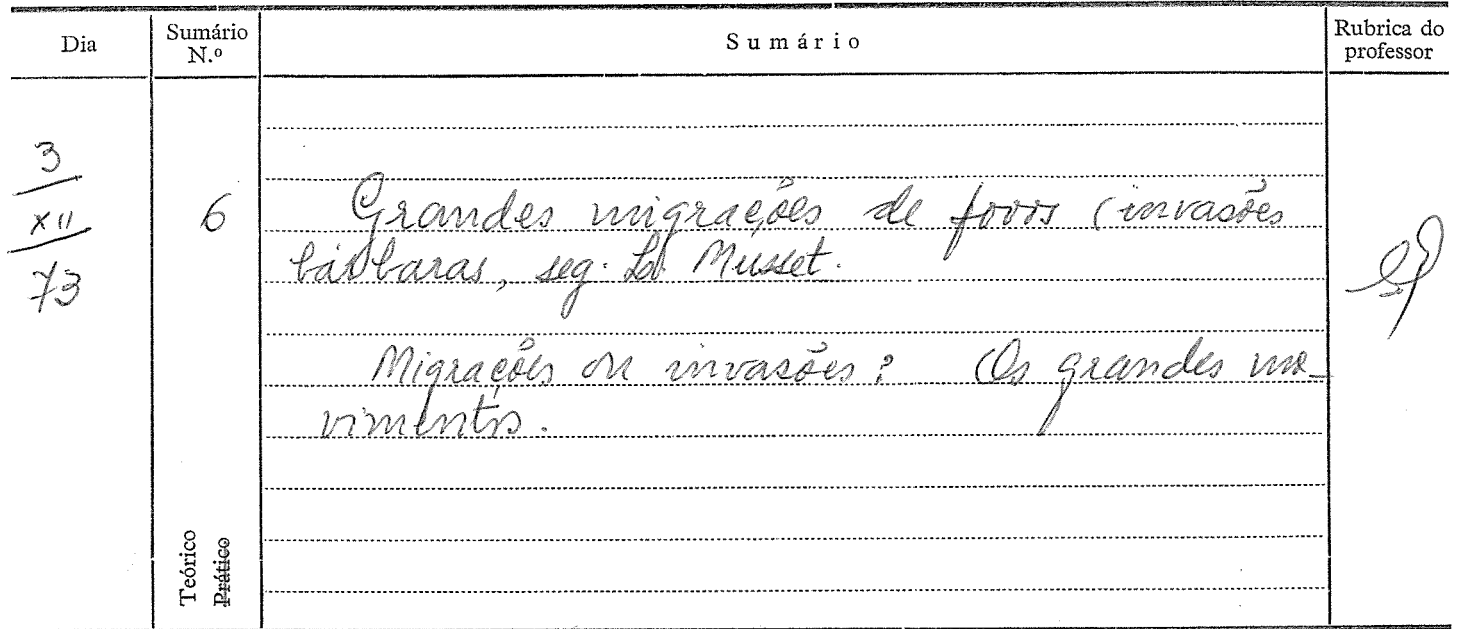 Dia
Sumário
N.º
Sumário
Rubrica do
professor
3
XII
73
6
Grandes migrações de povos (invasões
bárbaras, seg. Musset.
Migrações ou invasões? Os grandes mo-
vimentos.
Teórico
Prático